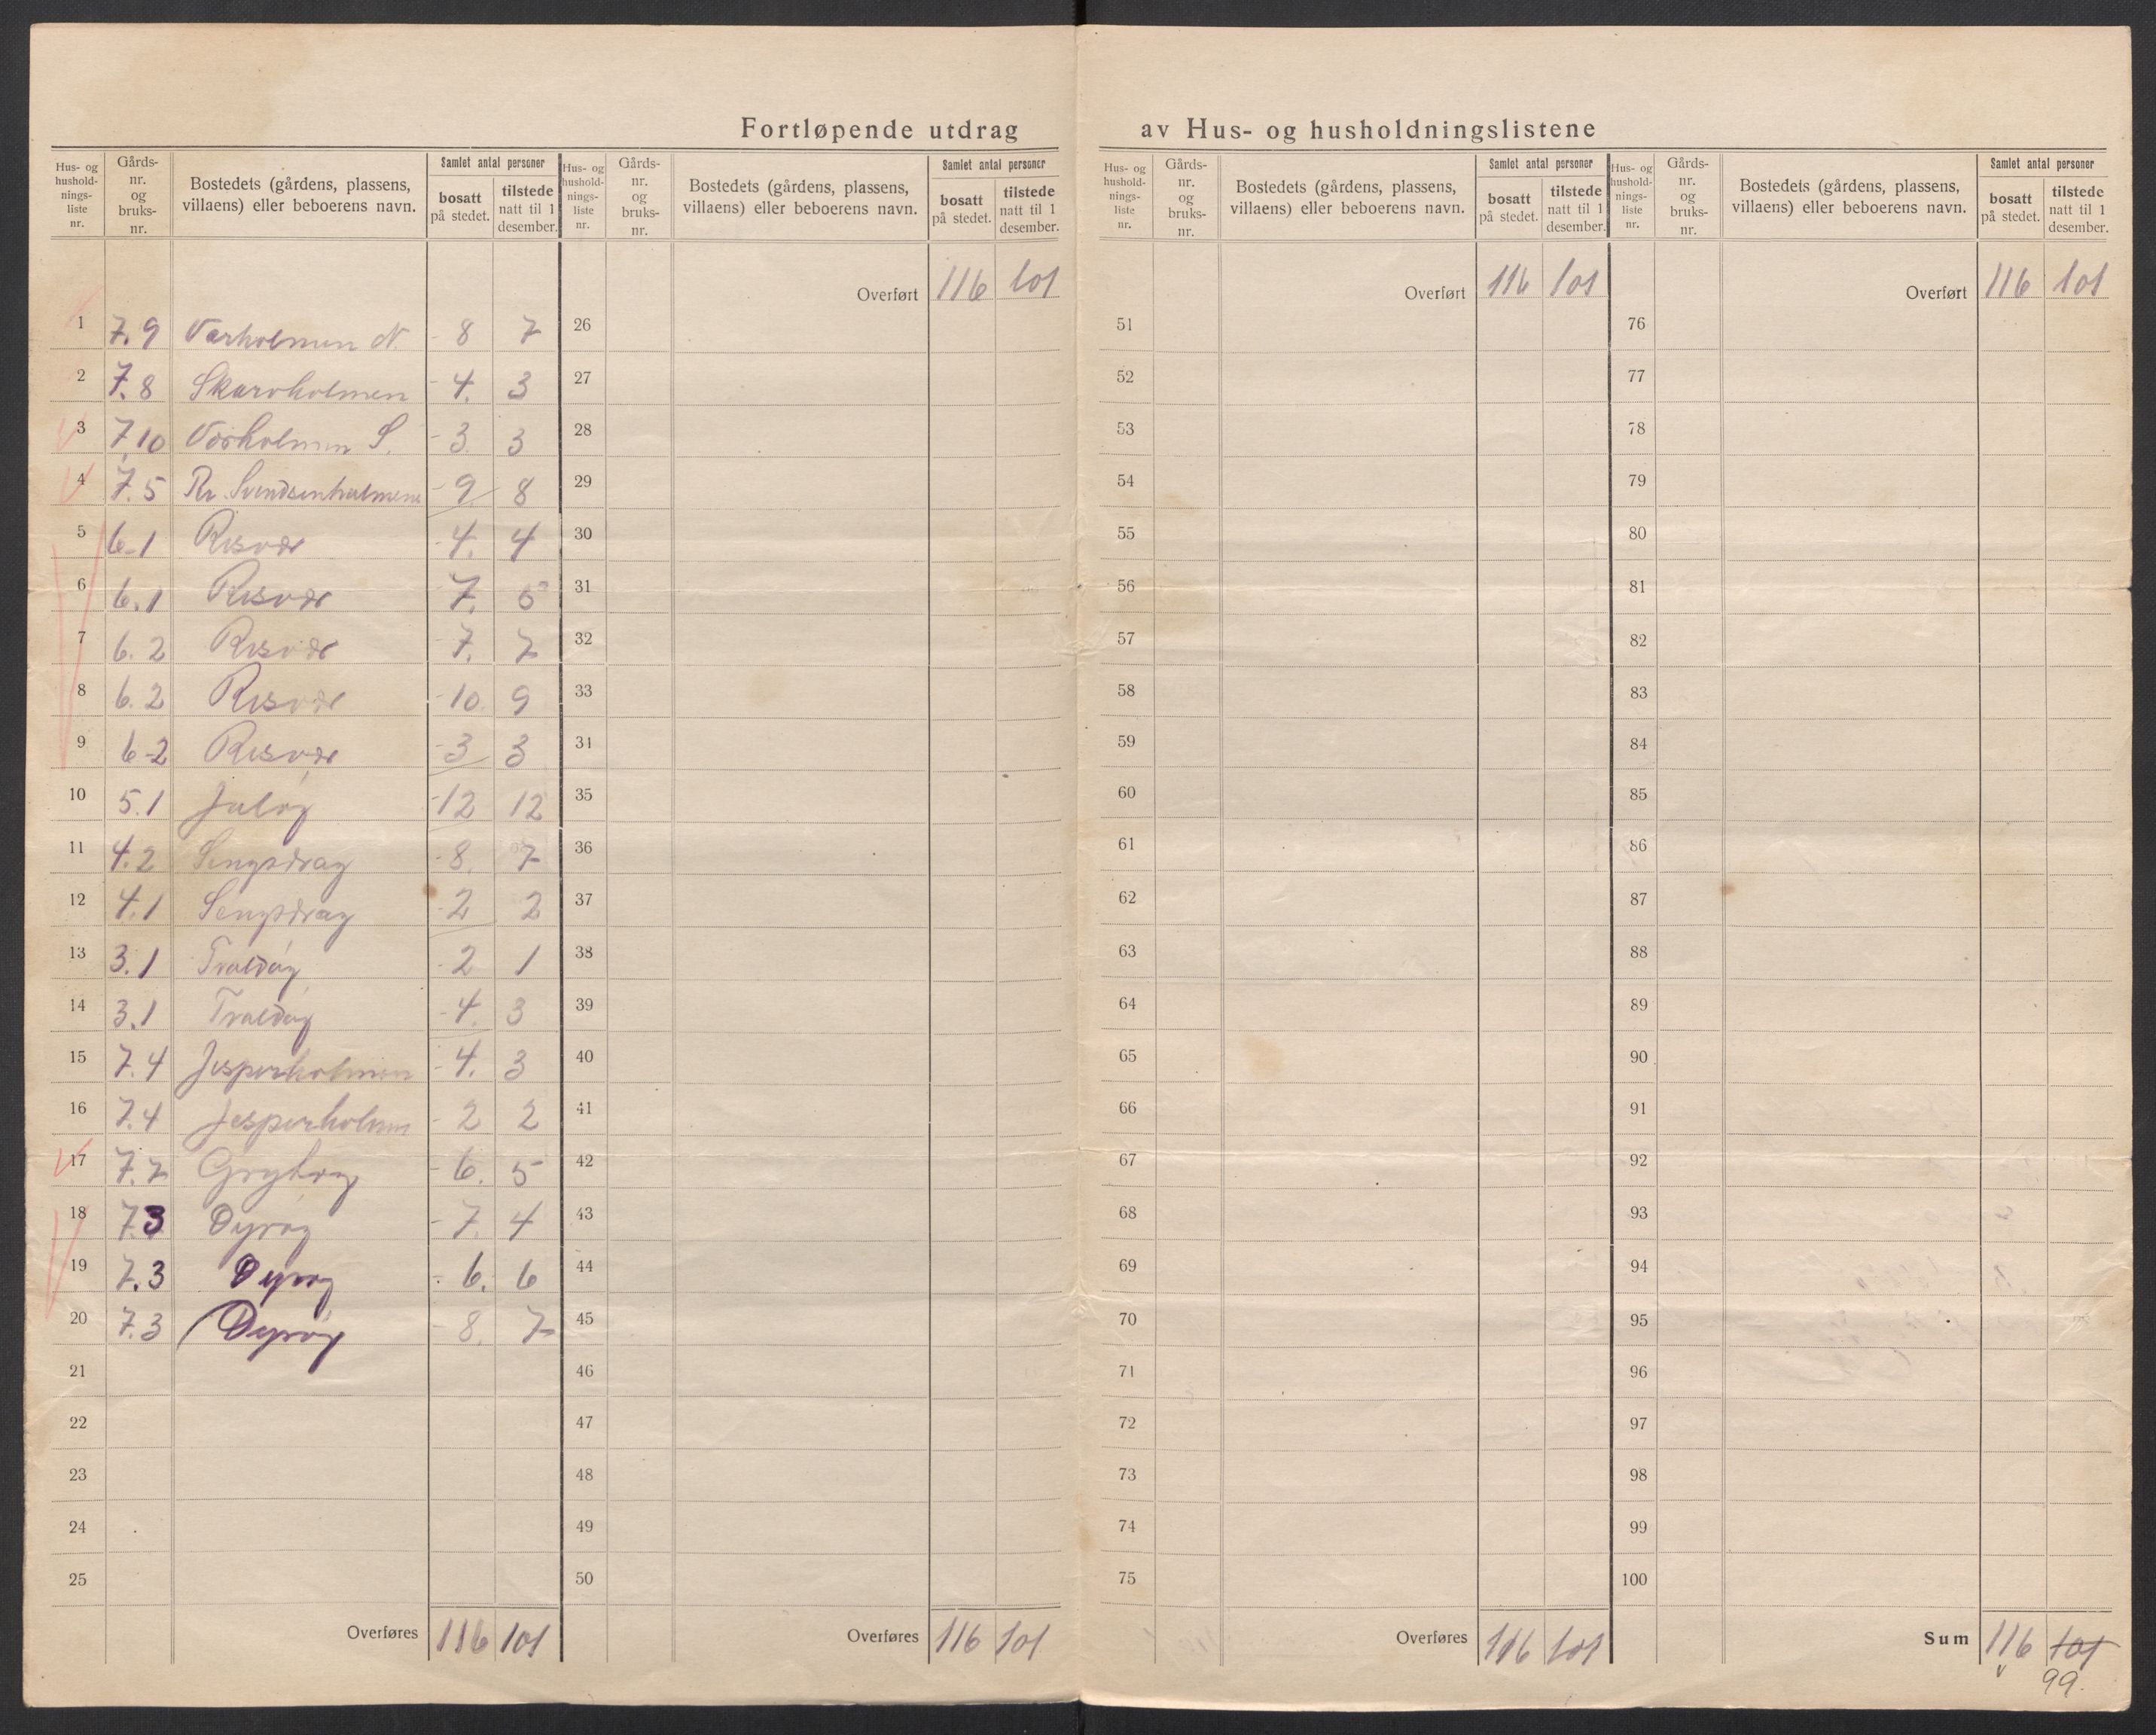 Fortløpende utdrag av Hus- og husholdningslistene
Hus- og hushold-nings-liste nr. Gårds-nr. og bruks-nr. Bostedets (gårdens, plassens, villaens) eller beboerens navn. Samlet antal personer bosatt på stedet. tilstede natt til 1 desember.
1 7.9 Varholmen N. - 8 7
2 7.8 Skarvholmen - 4. 3
3 7.10 Varholmen S. - 3. 3
4 7.5 Rr. Svendsenholmene - 9 8
5 6.1 Risvær - 4. 4
6 6.1 Risvær 7.
7 6.2 Risvær - 7. 7
8 6.2 Risvær - 10. 9
9 6-2 Risvær - 3 3
10 5.1 Juløy - 12 12
11 4.2 Sengsdrag - 8. 7
12 4.1 Sengsdrag - 2 2
13 3.1 - 2 1
14 3.1 - 4. 3
15 7.4 Jesperholmen - 4. 3
16 7.4 Jesperholmen - 2 2
17 7.7 - 6. 5
18 7.3 Dyrøy - 7. 4
19 7.3 Dyrøy - 6. 6
20 7.3 Dyrøy - 8. 7
21
22
23
24
25
Overføres 116 101
Hus- og hushold-nings-liste nr. Gårds-nr. og bruks-nr. Bostedets (gårdens, plassens, villaens) eller beboerens navn. Samlet antal personer bosatt på stedet. tilstede natt til 1 desember.
Overført 116 101
26
27
28
29
30
31
32
33
34
35
36
37
38
39
40
41
42
43
44
45
46
47
48
49
50
Overføres 116 101
Hus- og hushold-nings-liste nr. Gårds-nr. og bruks-nr. Bostedets (gårdens, plassens, villaens) eller beboerens navn. Samlet antal personer bosatt på stedet. tilstede natt til 1 desember.
Overført 116 101
51
52
53
54
55
56
57
58
59
60
61
62
63
64
65
66
67
68
69
70
71
72
73
74
75
Overføres 116 101
Hus- og hushold-nings-liste nr. Gårds-nr. og bruks-nr. Bostedets (gårdens, plassens, villaens) eller beboerens navn. Samlet antal personer bosatt på stedet. tilstede natt til 1 desember.
Overført 116 101
76
77
78
79
80
81
82
83
84
85
86
87
88
89
90
91
92
93
94
95
96
97
98
99
100
Sum 116 101
99.